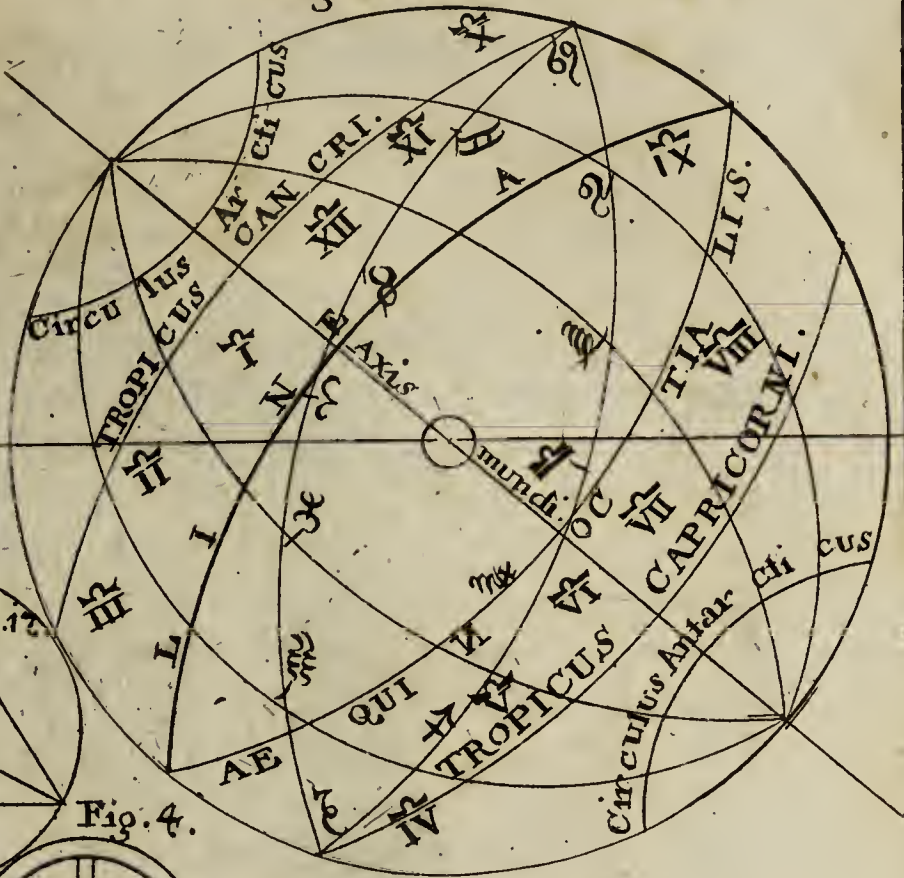 Circu lus Ar cti cus
TROPICUS CAN CRI.
LINEA
AE QUI N OC TIA LIS.
Axis mundi.
TROPICUS CAPRICORNI.
Circulus Antar cti cus
♎ X
♎ XI
♎ XII
♎ I
♎ II
♎ III
♎ IV
♎ V
♎ VI
♎ VII
♎ VIII
♎ IX
♋
♊
♌
♉
♍
♈
♎
♓
♏
♒
♐
♑
Fig. 4.